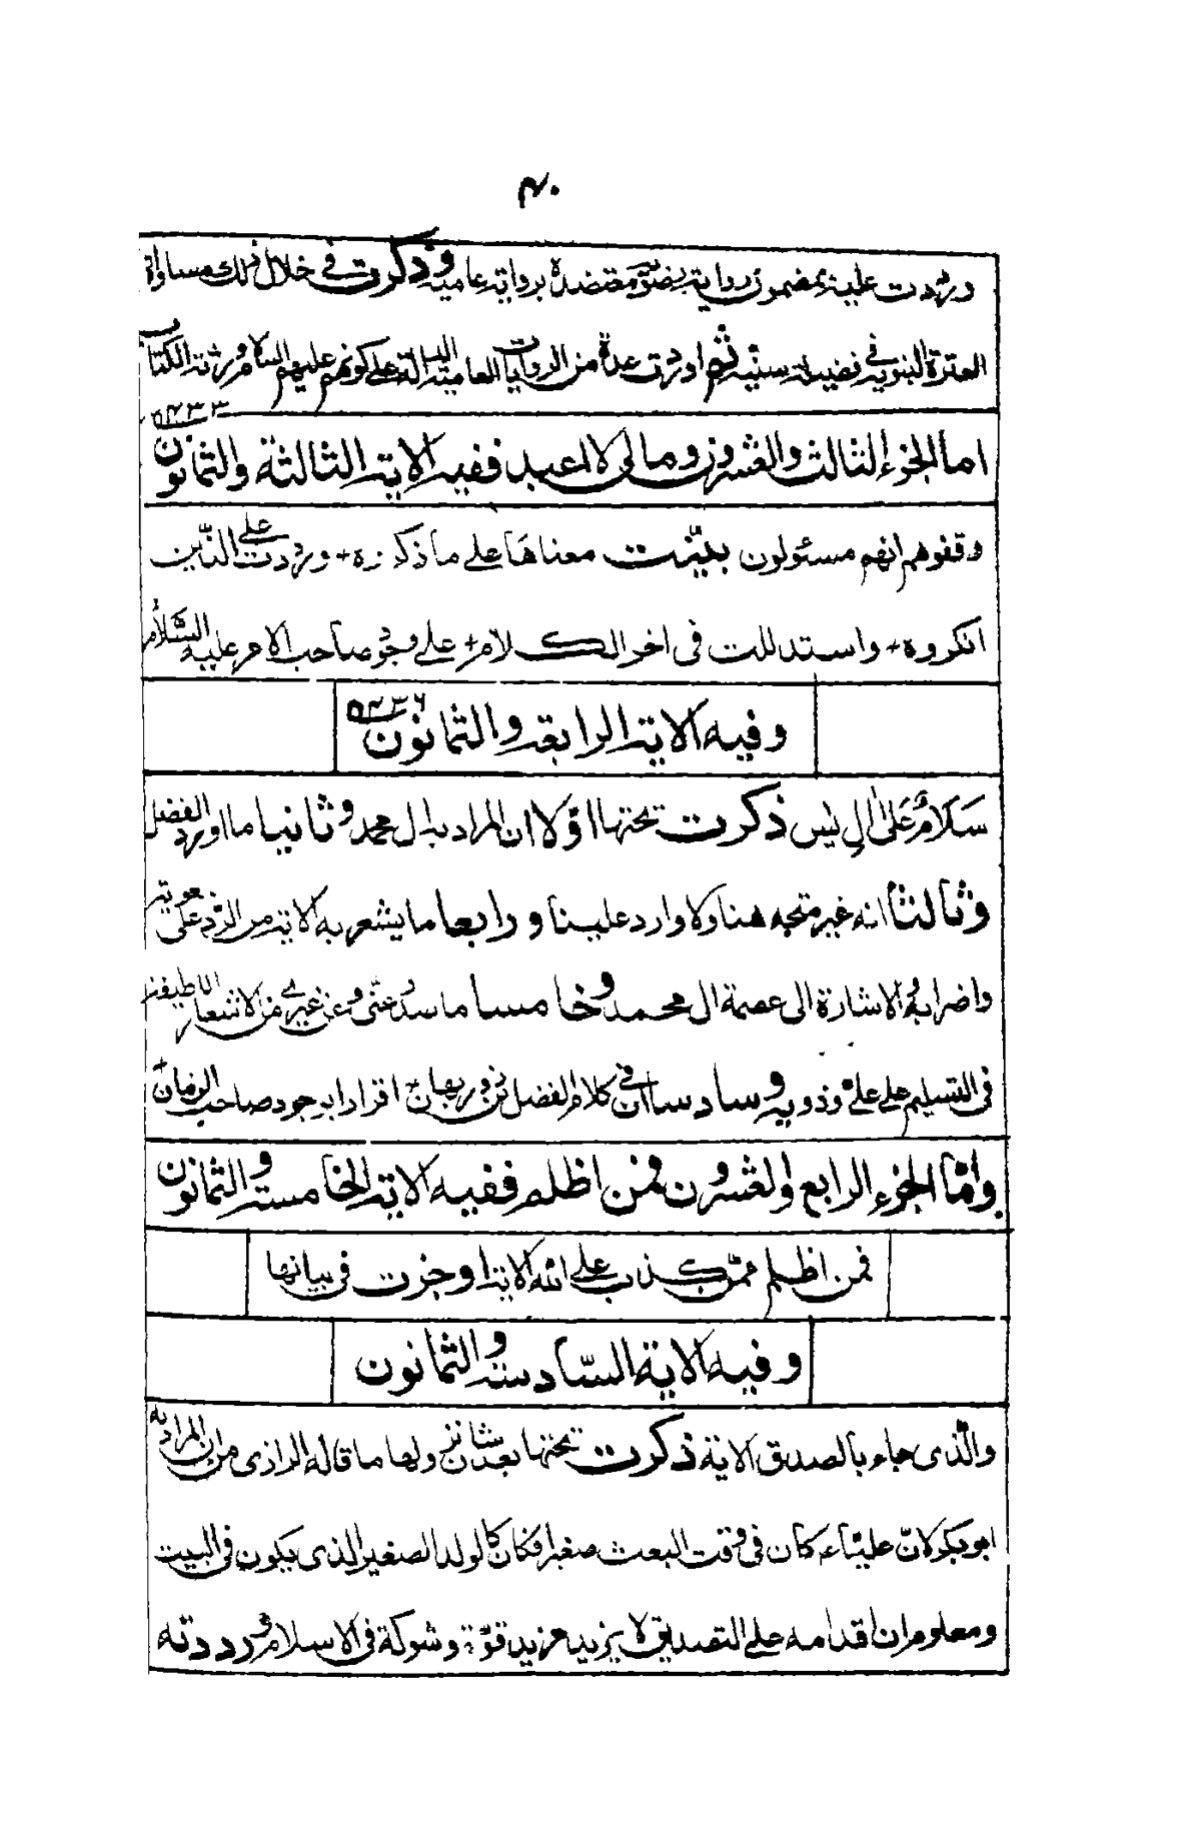 ۴۰
ورددت عليه بمضمون رواية رضوية معتضدة برواية عامية وذكرت فى خلال ذلك مساواة
العترة النبوية فى فضيلة سنية ثم اوردت عدة من الروايات العامية الدالة على كونهم عليهم السلام ورثة الكتاب
اما الجزء الثالث والعشرون ومالى لا اعبد ففيه الاية الثالثة والثمانون
وقفوهم انهم مسئولون بينت معناها على ما ذكره + ورددت على الذين
انكروه + واستدللت فى اخر الكلام + على وجود صاحب الامر عليه السلام
وفيه الاية الرابعة والثمانون
سَلَامٌ عَلٰى اٰلِ يٰس ذكرت تحتها اولا ان المراد به ال محمد وثانيا ما اورد الفضل
وثالثا انه غير متجه هنا ولا وارد علينا ورابعا ما يشعر به الاية من الرد على معوية
واضرابه والاشارة الى عصمة ال محمد وخامسا ما سد عنى وعن غيرى من الاشعار اللطيفة
فى التسليم على على وذويه وسادسا ان فى كلام الفضل بن روزبهان + اقرارا بوجود صاحب الزمان +
واما الجزء الرابع والعشرون فمن اظلم ففيه الاية الخامسة والثمانون
فمن اظلم ممن كذب على الله الاية اوجزت فى بيانها
وفيه الاية السادسة والثمانون
والذى جاء بالصدق الاية ذكرت تحتها بعد شان نزولها ما قاله الرازى من ان المراد به
ابو بكر لان عليا ء كان فى وقت البعث صغيرا فكان كالولد الصغير الذى يكون فى البيت
ومعلوم ان اقدامه على التصديق لا يزيد مزيد قوة وشوكة فى الاسلام ورددته